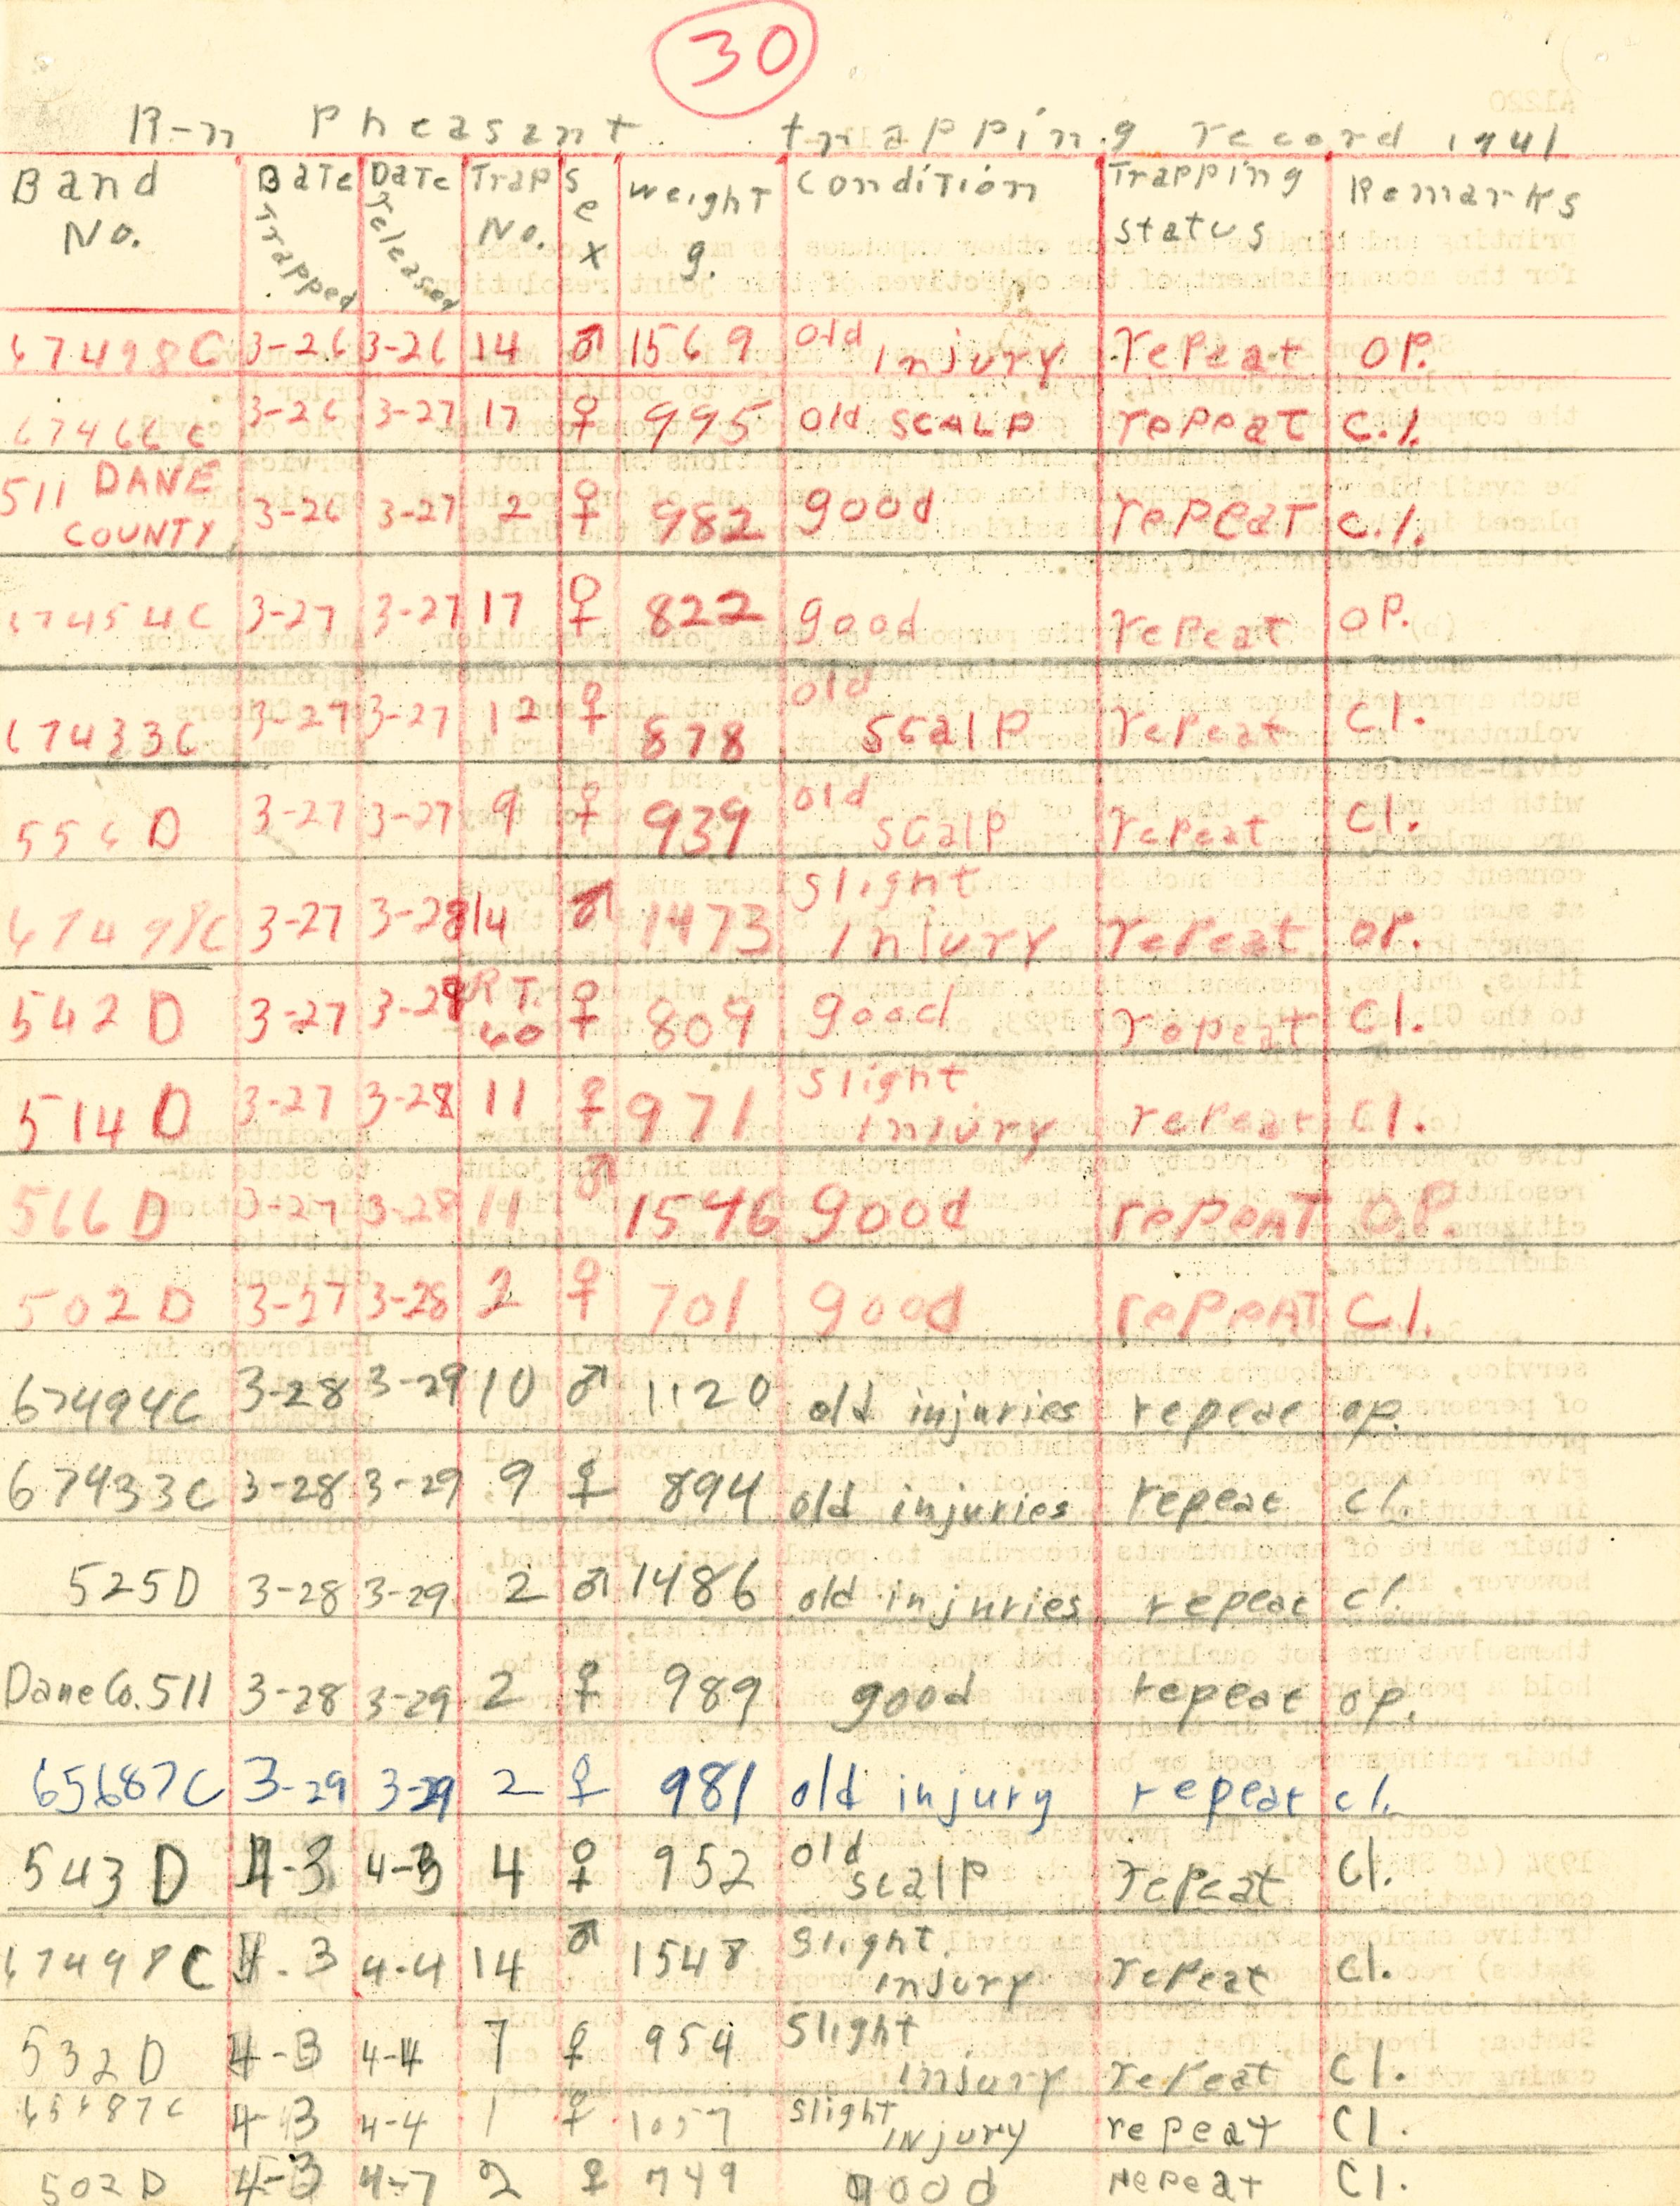 30
R-n Pheasant trapping record 1941
Band No. Date Trapped Date released Trap No. Sex Weight g. Condition Trapping status Remarks
67498C 3-26 3-26 14 ♂ 1569 old injury repeat OP.
67466C 3-26 3-27 17 ♀ 995 old SCALP repeat C.l.
511 DANE COUNTY 3-26 3-27 2 ♀ 982 good repeat C.l.
67454C 3-27 3-27 17 ♀ 822 good repeat OP.
67433C 3-27 3-27 12 ♀ 878 old scalp repeat Cl.
556 D 3-27 3-27 9 ♀ 939 old scalp repeat Cl.
67498C 3-27 3-28 14 ♂ 1473 slight injury repeat OP.
542 D 3-27 3-28 R T. 60 ♀ 809 good repeat Cl.
514 D 3-27 3-28 11 ♀ 971 slight injury repeat Cl.
566 D 3-27 3-28 11 ♂ 1546 good repeat O.P.
502 D 3-27 3-28 2 ♀ 701 good repeat C.l.
67494C 3-28 3-29 10 ♂ 1120 old injuries repeat op.
67433C 3-28 3-29 9 ♀ 894 old injuries repeat cl.
525D 3-28 3-29 2 ♂ 1486 old injuries repeat cl.
Dane Co. 511 3-28 3-29 2 ♀ 989 good repeat op.
65687C 3-29 3-29 2 ♀ 981 old injury repeat cl.
543 D 4-3 4-3 4 ♀ 952 old scalp repeat Cl.
67498C 4-3 4-4 14 ♂ 1548 slight injury repeat Cl.
532 D 4-3 4-4 7 ♀ 954 slight injury repeat Cl.
65687C 4-3 4-4 1 ♀ 1057 slight injury repeat Cl.
502 D 4-3 4-7 2 ♀ 749 good repeat Cl.